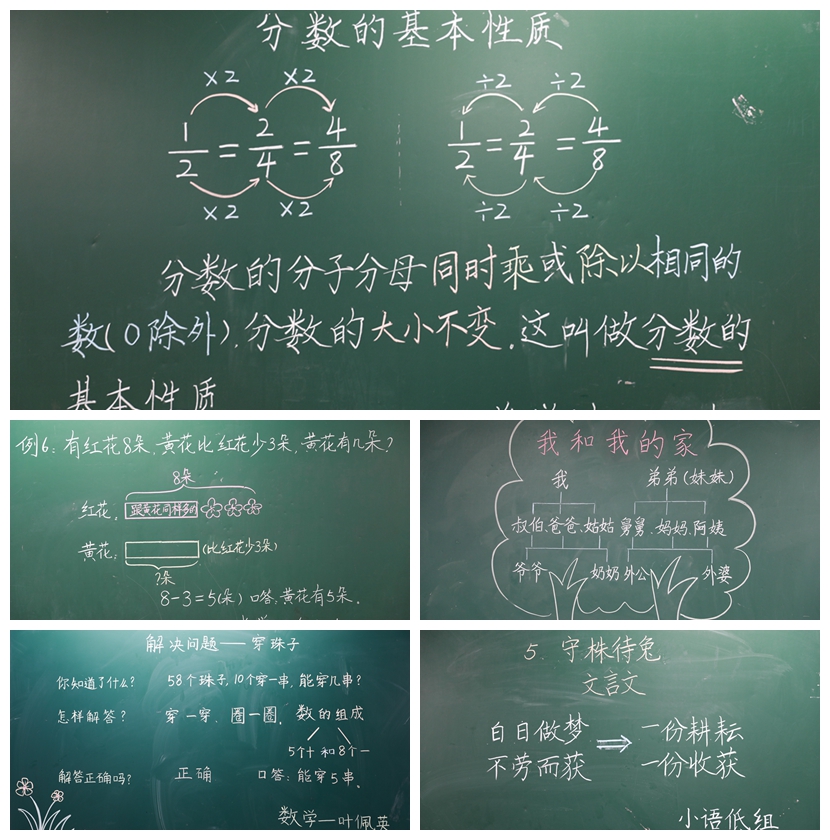 分数的基本性质
×2 ×2 ÷2 ÷2
1/2 = 2/4 = 4/8 1/2 = 2/4 = 4/8
×2 ×2 ÷2 ÷2
分数的分子分母同时乘或除以相同的
数(0除外),分数的大小不变.这叫做分数的
基本性质
例6:有红花8朵,黄花比红花少3朵,黄花有几朵?
8朵
红花: 跟黄花同样多的
黄花: (比红花少3朵)
?朵
8-3=5(朵) 口答:黄花有5朵.
我和我的家
我 弟弟(妹妹)
叔伯.爸爸.姑姑 舅舅.妈妈.阿姨
爷爷 奶奶 外公 外婆
解决问题——穿珠子
你知道了什么? 58个珠子,10个穿一串,能穿几串?
怎样解答? 穿一穿、圈一圈、数的组成
5个十和8个一
解答正确吗? 正确 口答:能穿5串.
数学—叶佩英
5. 守株待兔
文言文
白日做梦 ⇒ 一份耕耘
不劳而获 一份收获
小语低组